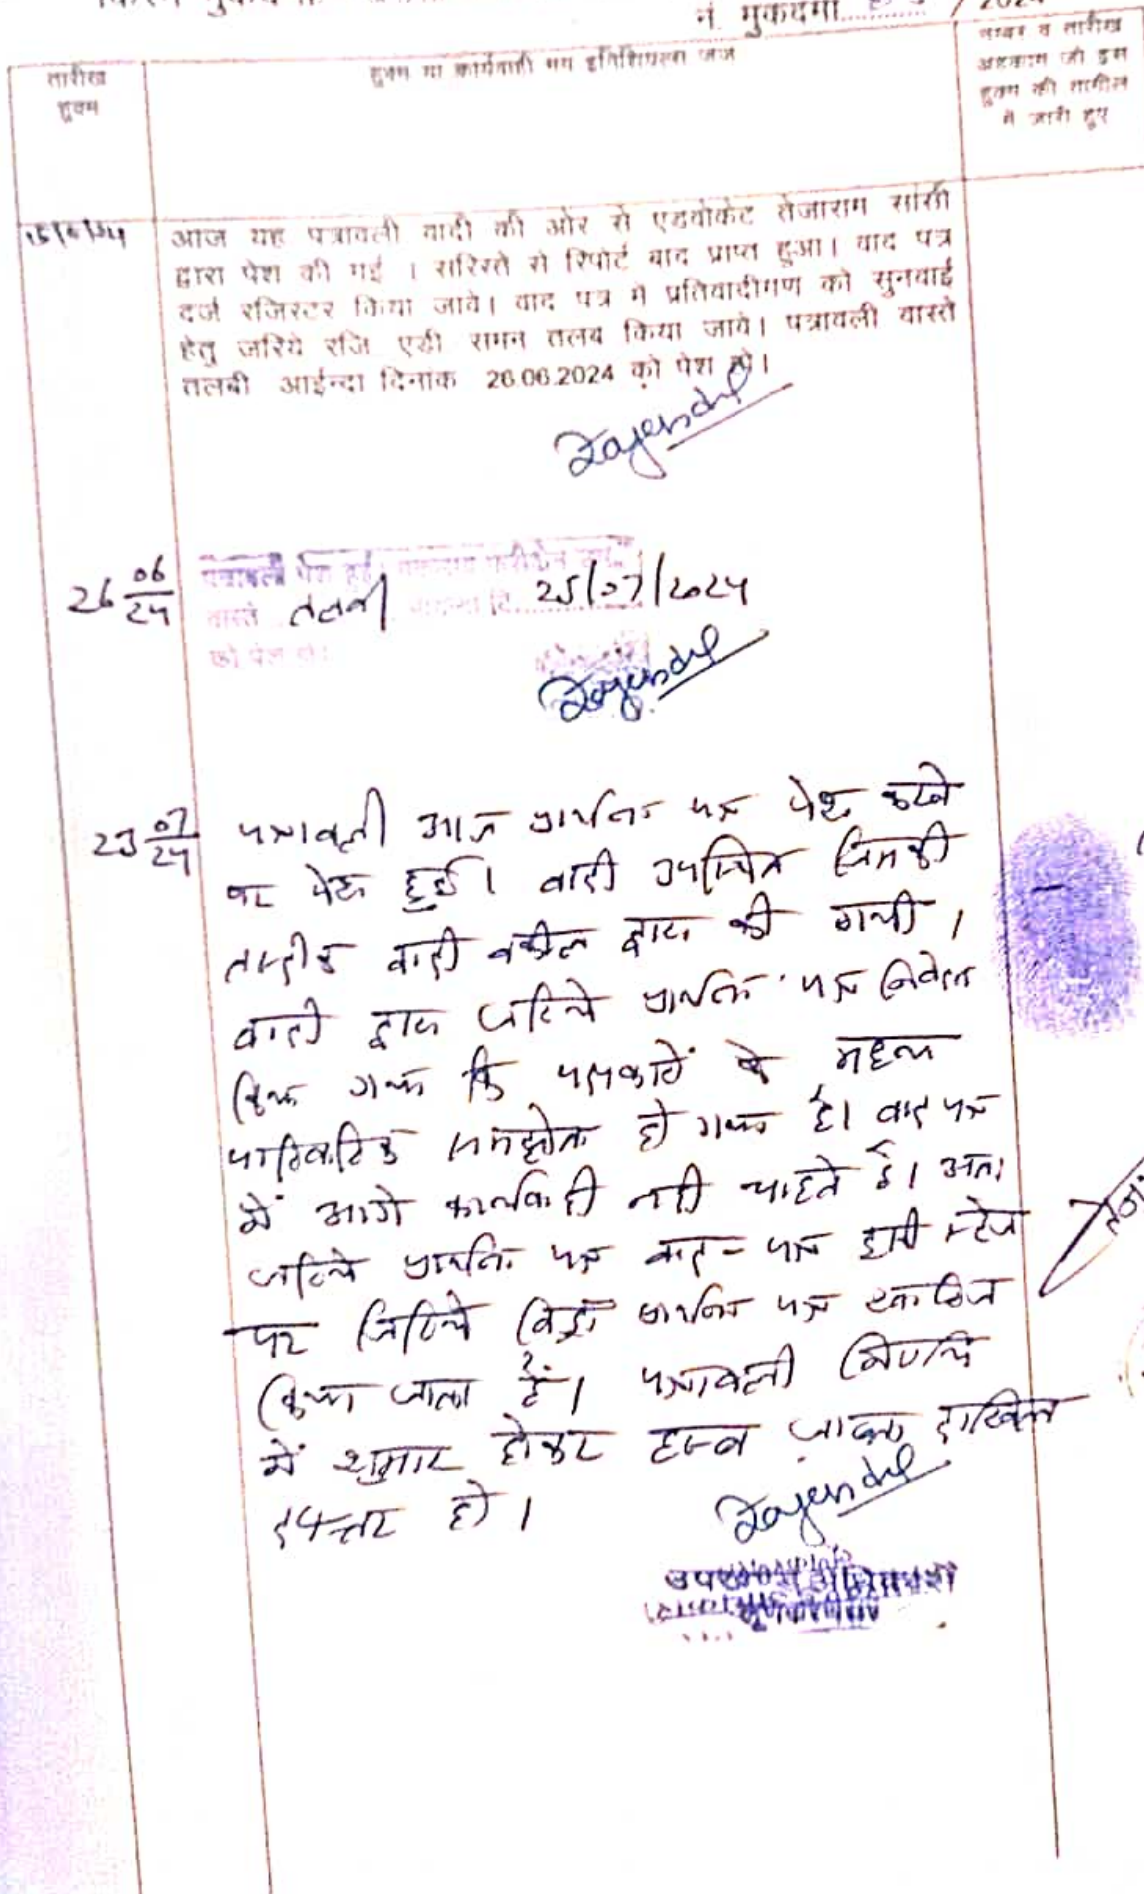 नं. मुकदमा............ / 2024
तारीख
हुक्म
हुक्म या कार्यवाही मय इनिशियल्स जज
नम्बर व तारीख
अहकाम जो इस
हुक्म की तामील
में जारी हुए
आज यह पत्रावली वादी की ओर से एडवोकेट तेजाराम सांसी
द्वारा पेश की गई । सरिस्ते से रिपोर्ट बाद प्राप्त हुआ। वाद पत्र
दर्ज रजिस्टर किया जावे। वाद पत्र में प्रतिवादीगण को सुनवाई
हेतु जरिये रजि एडी समन तलब किया जावे। पत्रावली वास्ते
तलबी आईन्दा दिनांक 26.06.2024 को पेश हो।
Rajendra
26 06/24
पत्रावली पेश हुई।
वास्ते तलबी 25/07/2024
को पेश हो।
Rajendra
23 07/24
पत्रावली आज प्रार्थना पत्र पेश करने
पर पेश हुई। वादी उपस्थित जिसकी
तस्दीक वादी वकील द्वारा की गयी ।
वादी द्वारा जरिये प्रार्थना पत्र निवेदन
किया गया कि पक्षकारों के मध्य
पारिवारिक समझौता हो गया है। वाद पत्र
में आगे कार्यवाही नही चाहते है। अतः
जरिये प्रार्थना पत्र वाद-पत्र इसी स्टेज
पर जरिये विड्रॉ प्रार्थना पत्र खारिज
किया जाता है। पत्रावली निर्णय
में शुमार होकर बाद जाब्ता दाखिल
दफ्तर हो ।
Rajendra
उपखण्ड अधिकारी